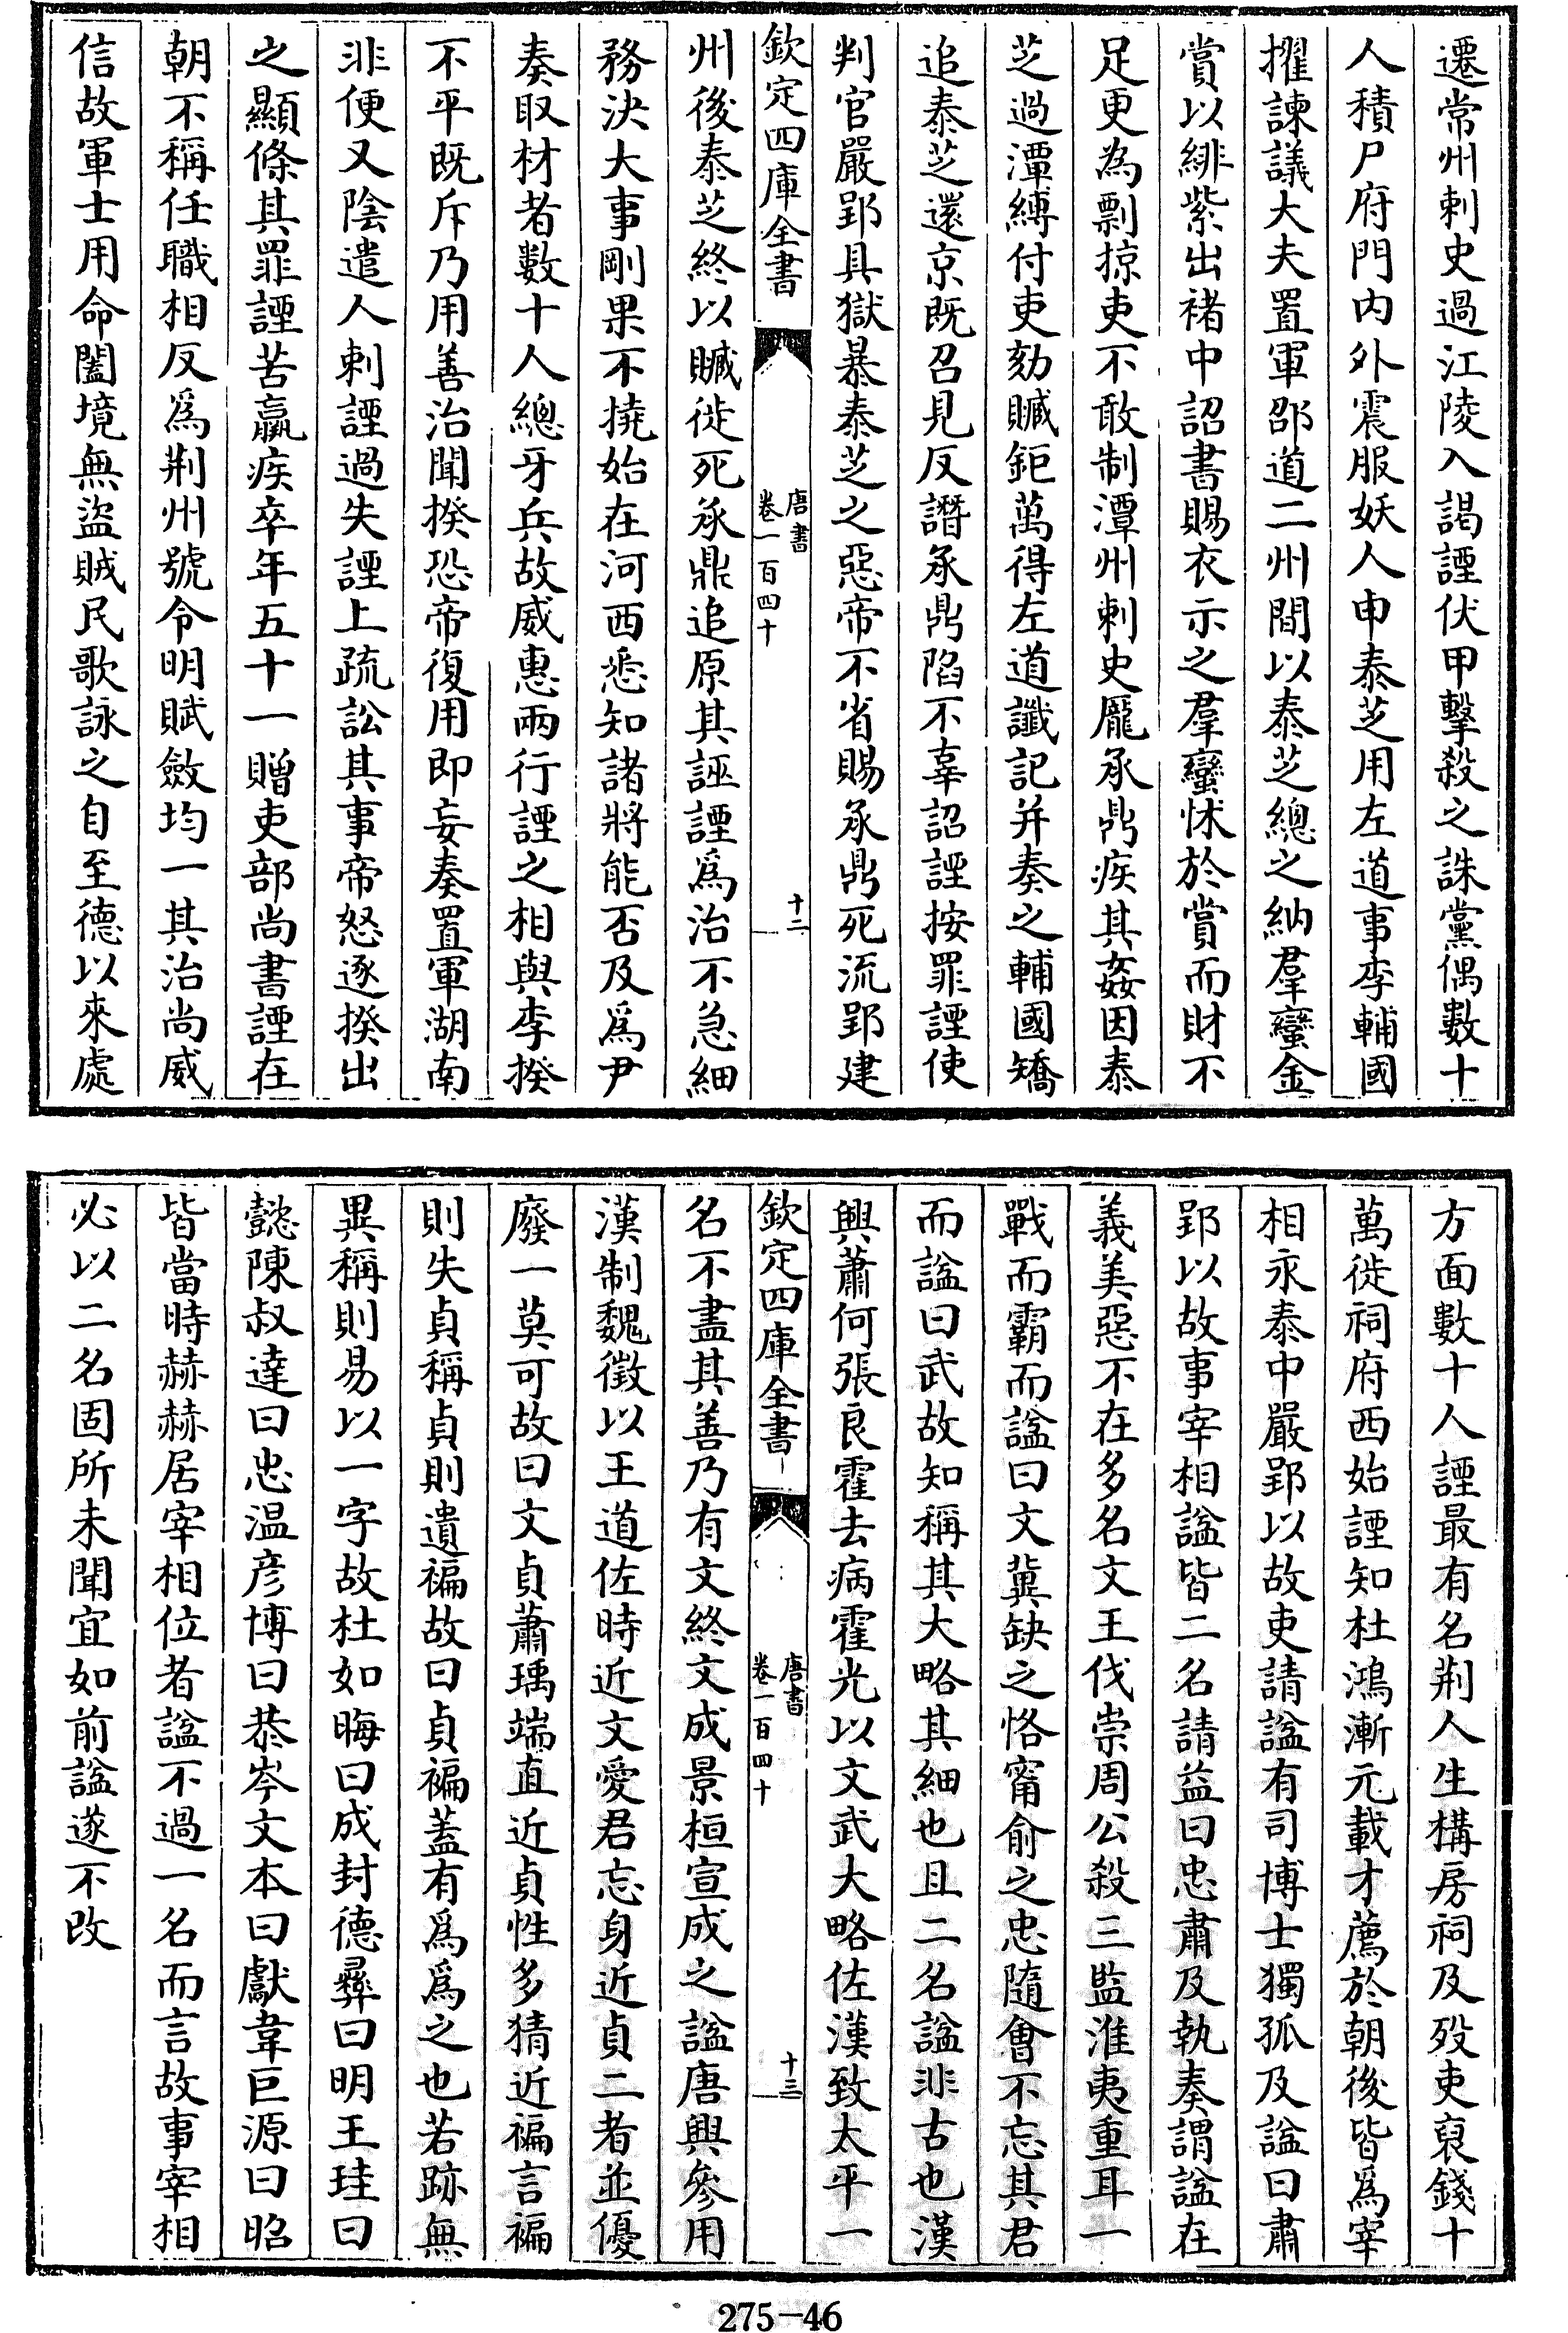 遷常州刺史過江陵入謁諲伏甲擊殺之誅黨偶數十
人積尸府門内外震服妖人申泰芝用左道事李輔國
擢諫議大夫置軍邵道二州間以泰芝總之納羣蠻金
賞以緋紫出褚中詔書賜衣示之羣蠻怵於賞而財不
足更為剽掠吏不敢制潭州刺史龐承鼎疾其姦因泰
芝過潭縛付吏劾贓鉅萬得左道讖記并奏之輔國矯
追泰芝還京既召見反譖承鼎陷不辜詔諲按罪諲使
判官嚴郢具獄暴泰芝之惡帝不省賜承鼎死流郢建
欽定四庫全書
唐書
卷一百四十
十二
州後泰芝終以贓徙死承鼎追原其誣諲爲治不急細
務決大事剛果不撓始在河西悉知諸將能否及爲尹
奏取材者數十人總牙兵故威惠兩行諲之相與李揆
不平既斥乃用善治聞揆恐帝復用即妄奏置軍湖南
非便又陰遣人刺諲過失諲上疏訟其事帝怒逐揆出
之顯條其罪諲苦羸疾卒年五十一贈吏部尚書諲在
朝不稱任職相反爲荆州號令明賦斂均一其治尚威
信故軍士用命闔境無盜賊民歌詠之自至德以來處
方面數十人諲最有名荆人生構房祠及歿吏裒錢十
萬徙祠府西始諲知杜鴻漸元載才薦於朝後皆爲宰
相永泰中嚴郢以故吏請諡有司博士獨孤及諡曰肅
郢以故事宰相諡皆二名請益曰忠肅及執奏謂諡在
義美惡不在多名文王伐崇周公殺三監淮夷重耳一
戰而霸而諡曰文冀缺之恪甯俞之忠隨會不忘其君
而諡曰武故知稱其大略其細也且二名諡非古也漢
興蕭何張良霍去病霍光以文武大略佐漢致太平一
欽定四庫全書
唐書
卷一百四十
十三
名不盡其善乃有文終文成景桓宣成之諡唐興參用
漢制魏徵以王道佐時近文愛君忘身近貞二者並優
廢一莫可故曰文貞蕭瑀端直近貞性多猜近褊言褊
則失貞稱貞則遺褊故曰貞褊蓋有爲爲之也若跡無
異稱則易以一字故杜如晦曰成封德彝曰明王珪曰
懿陳叔達曰忠温彦博曰恭岑文本曰獻韋巨源曰昭
皆當時赫赫居宰相位者諡不過一名而言故事宰相
必以二名固所未聞宜如前諡遂不改
275-46